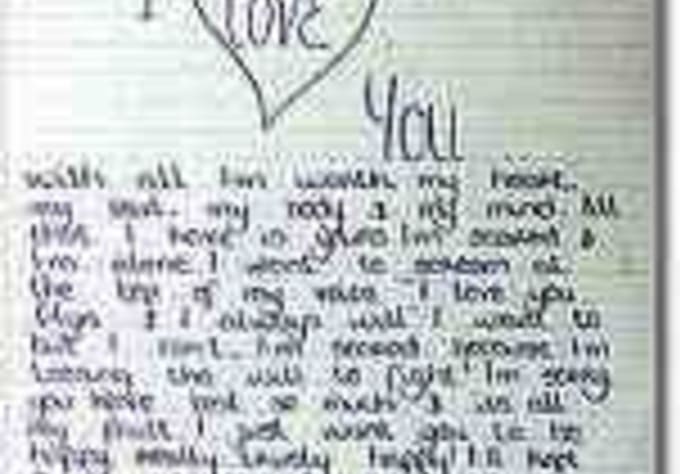 I
LOVE
YOU
with all I'm worth my heart,
my soul, my body & my mind. All
that I have is gone I'm scared &
I'm alone I want to scream at
the top of my voice "I love you
& I always will" I want to
but I can't. I'm scared because I'm
loosing the will to fight! I'm sorry
you have lost so much & its all
my fault I just want you to be
happy really truely happy! I'll